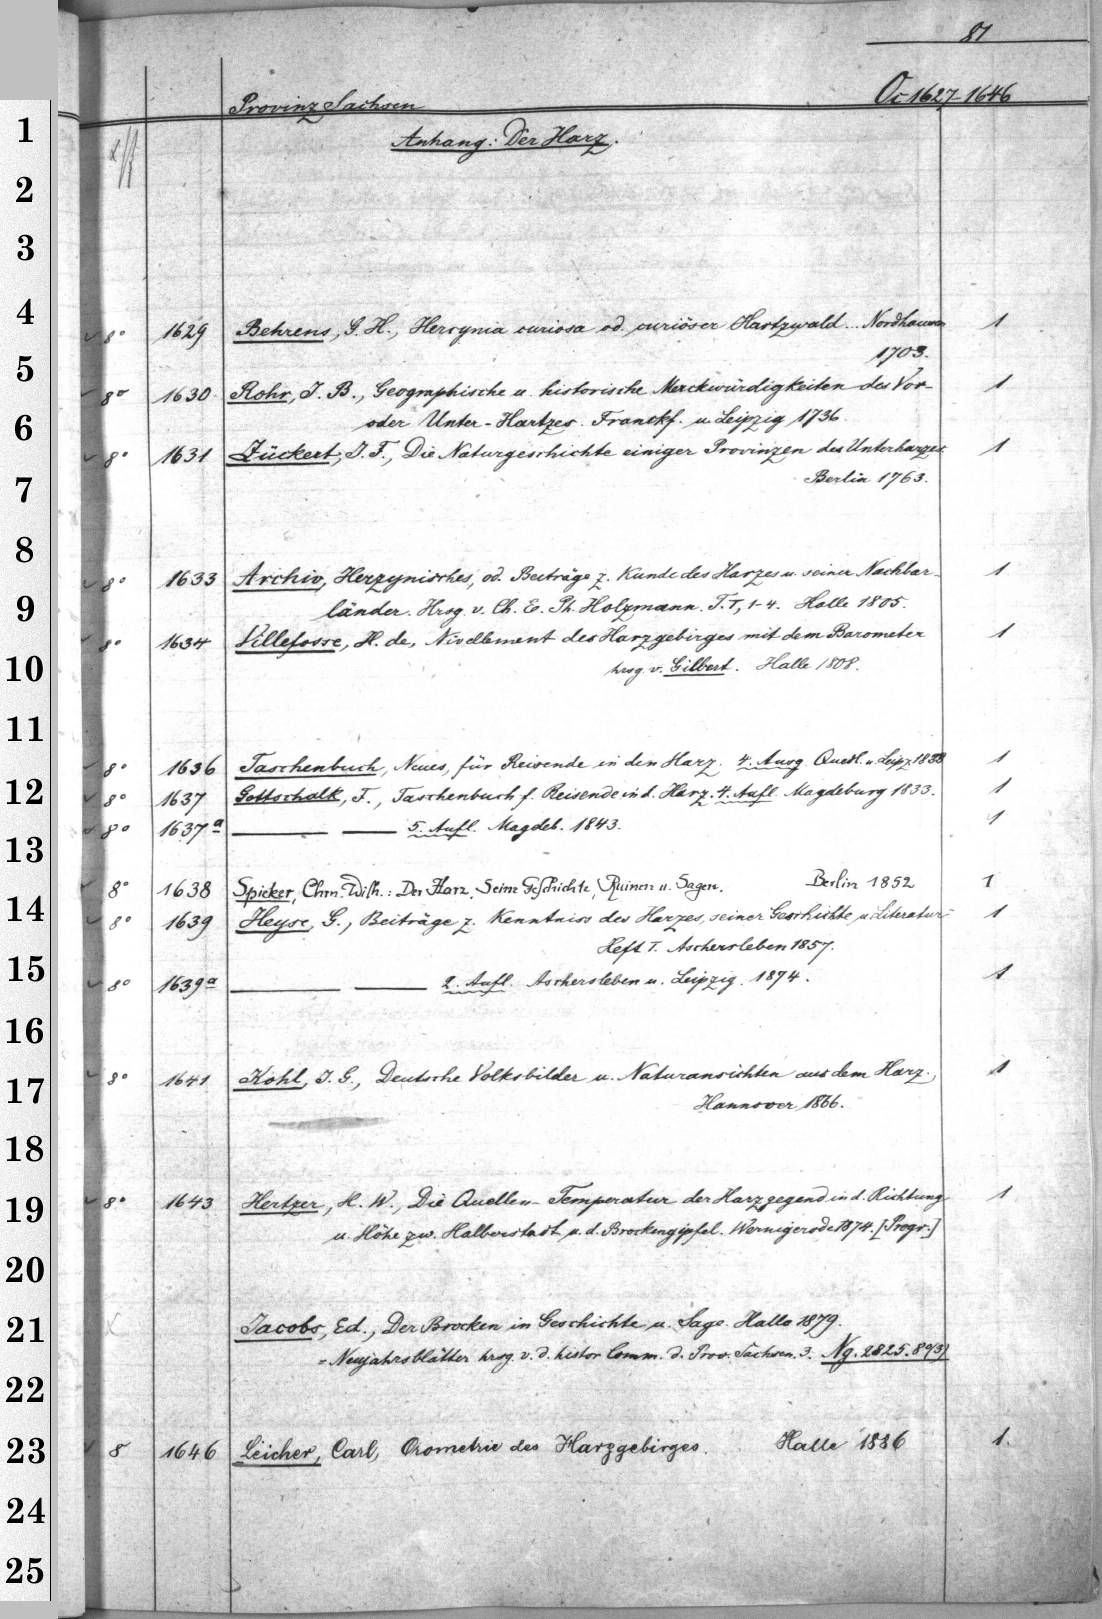 81
Provinz Sachsen Oc 1627-1646
Anhang: Der Harz.
8° 1629 Behrens, G. H., Hercynia curiosa od. curiöser Hartzwald... Nordhausen 1
1703.
8° 1630 Rohr, J. B., Geographische u. historische Merckwürdigkeiten des Vor- 1
oder Unter-Hartzes. Franckf. u. Leipzig 1736.
8° 1631 Zückert, J. F., Die Naturgeschichte einiger Provinzen des Unterharzes. 1
Berlin 1763.
8° 1633 Archiv, Herzynisches, od. Beiträge z. Kunde des Harzes u. seiner Nachbar- 1
länder. Hrsg. v. Ch. E. Ph. Holzmann. T. I, 1-4. Halle 1805.
8° 1634 Villefosse, H. de, Nivellement des Harzgebirges mit dem Barometer 1
hrsg. v. Gilbert. Halle 1808.
8° 1636 Taschenbuch, Neues, für Reisende in den Harz. 4. Ausg. Quedl. u. Leipz. 1838 1
8° 1637 Gottschalk, F., Taschenbuch f. Reisende in d. Harz. 4. Aufl. Magdeburg 1833. 1
8° 1637a 5. Aufl. Magdeb. 1843. 1
8° 1638 Spieker, Chrn. Wilh.: Der Harz, Seine Geschichte, Ruinen u. Sagen. Berlin 1852 1
8° 1639 Heyse, G., Beiträge z. Kenntniss des Harzes, seiner Geschichte u. Literatur 1
Heft I. Aschersleben 1857.
8° 1639a 2. Aufl. Aschersleben u. Leipzig. 1874. 1
8° 1641 Kohl, J. G., Deutsche Volksbilder u. Naturansichten aus dem Harz. 1
Hannover 1866.
8° 1643 Hertzer, H. W., Die Quellen-Temperatur der Harzgegend in d. Richtung 1
u. Höhe zw. Halberstadt u. d. Brockengipfel. Wernigerode 1874. [Progr.]
Jacobs, Ed., Der Brocken in Geschichte u. Sage. Halle 1879.
= Neujahrsblätter hrsg. v. d. histor. Comm. d. Prov. Sachsen. 3. Ng. 2825. 8°(3)
8 1646 Leicher, Carl, Orometrie des Harzgebirges. Halle 1886 1.
1
2
3
4
5
6
7
8
9
10
11
12
13
14
15
16
17
18
19
20
21
22
23
24
25